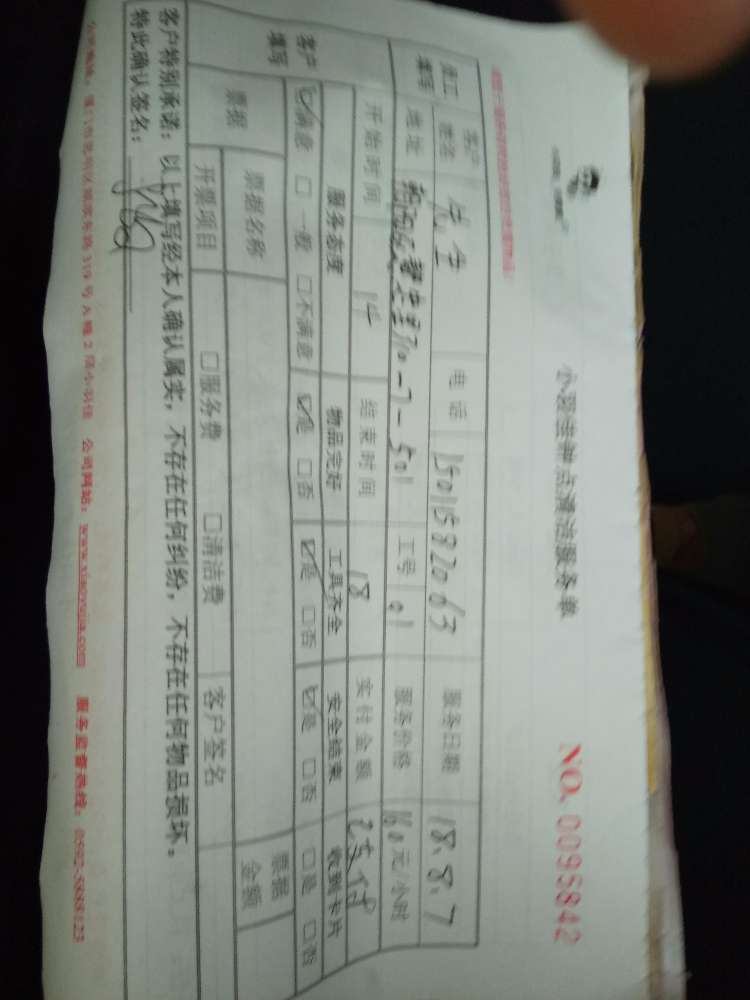 小羽佳钟点清洁服务单
NO. 0095842
员工填写 客户姓名 先生 电话 15015832063 服务日期 18.8.7
地址 工号 01 服务价格 160元/小时
开始时间 14 结束时间 18 实付金额 已支付
客户填写 服务态度 物品完好 工具齐全 安全结束 收到卡片
☑满意 □一般 □不满意 ☑是 □否 ☑是 □否 ☑是 □否 □是 □否
票据 票据名称 票据金额
开票项目 □服务费 □清洁费 客户签名
客户特别承诺：以上填写经本人确认属实，不存在任何纠纷，不存在任何物品损坏。
特此确认签名：
319号A幢2 小羽佳 公司网站：www.xiaoyujia.com 服务监督热线：0592-5888123